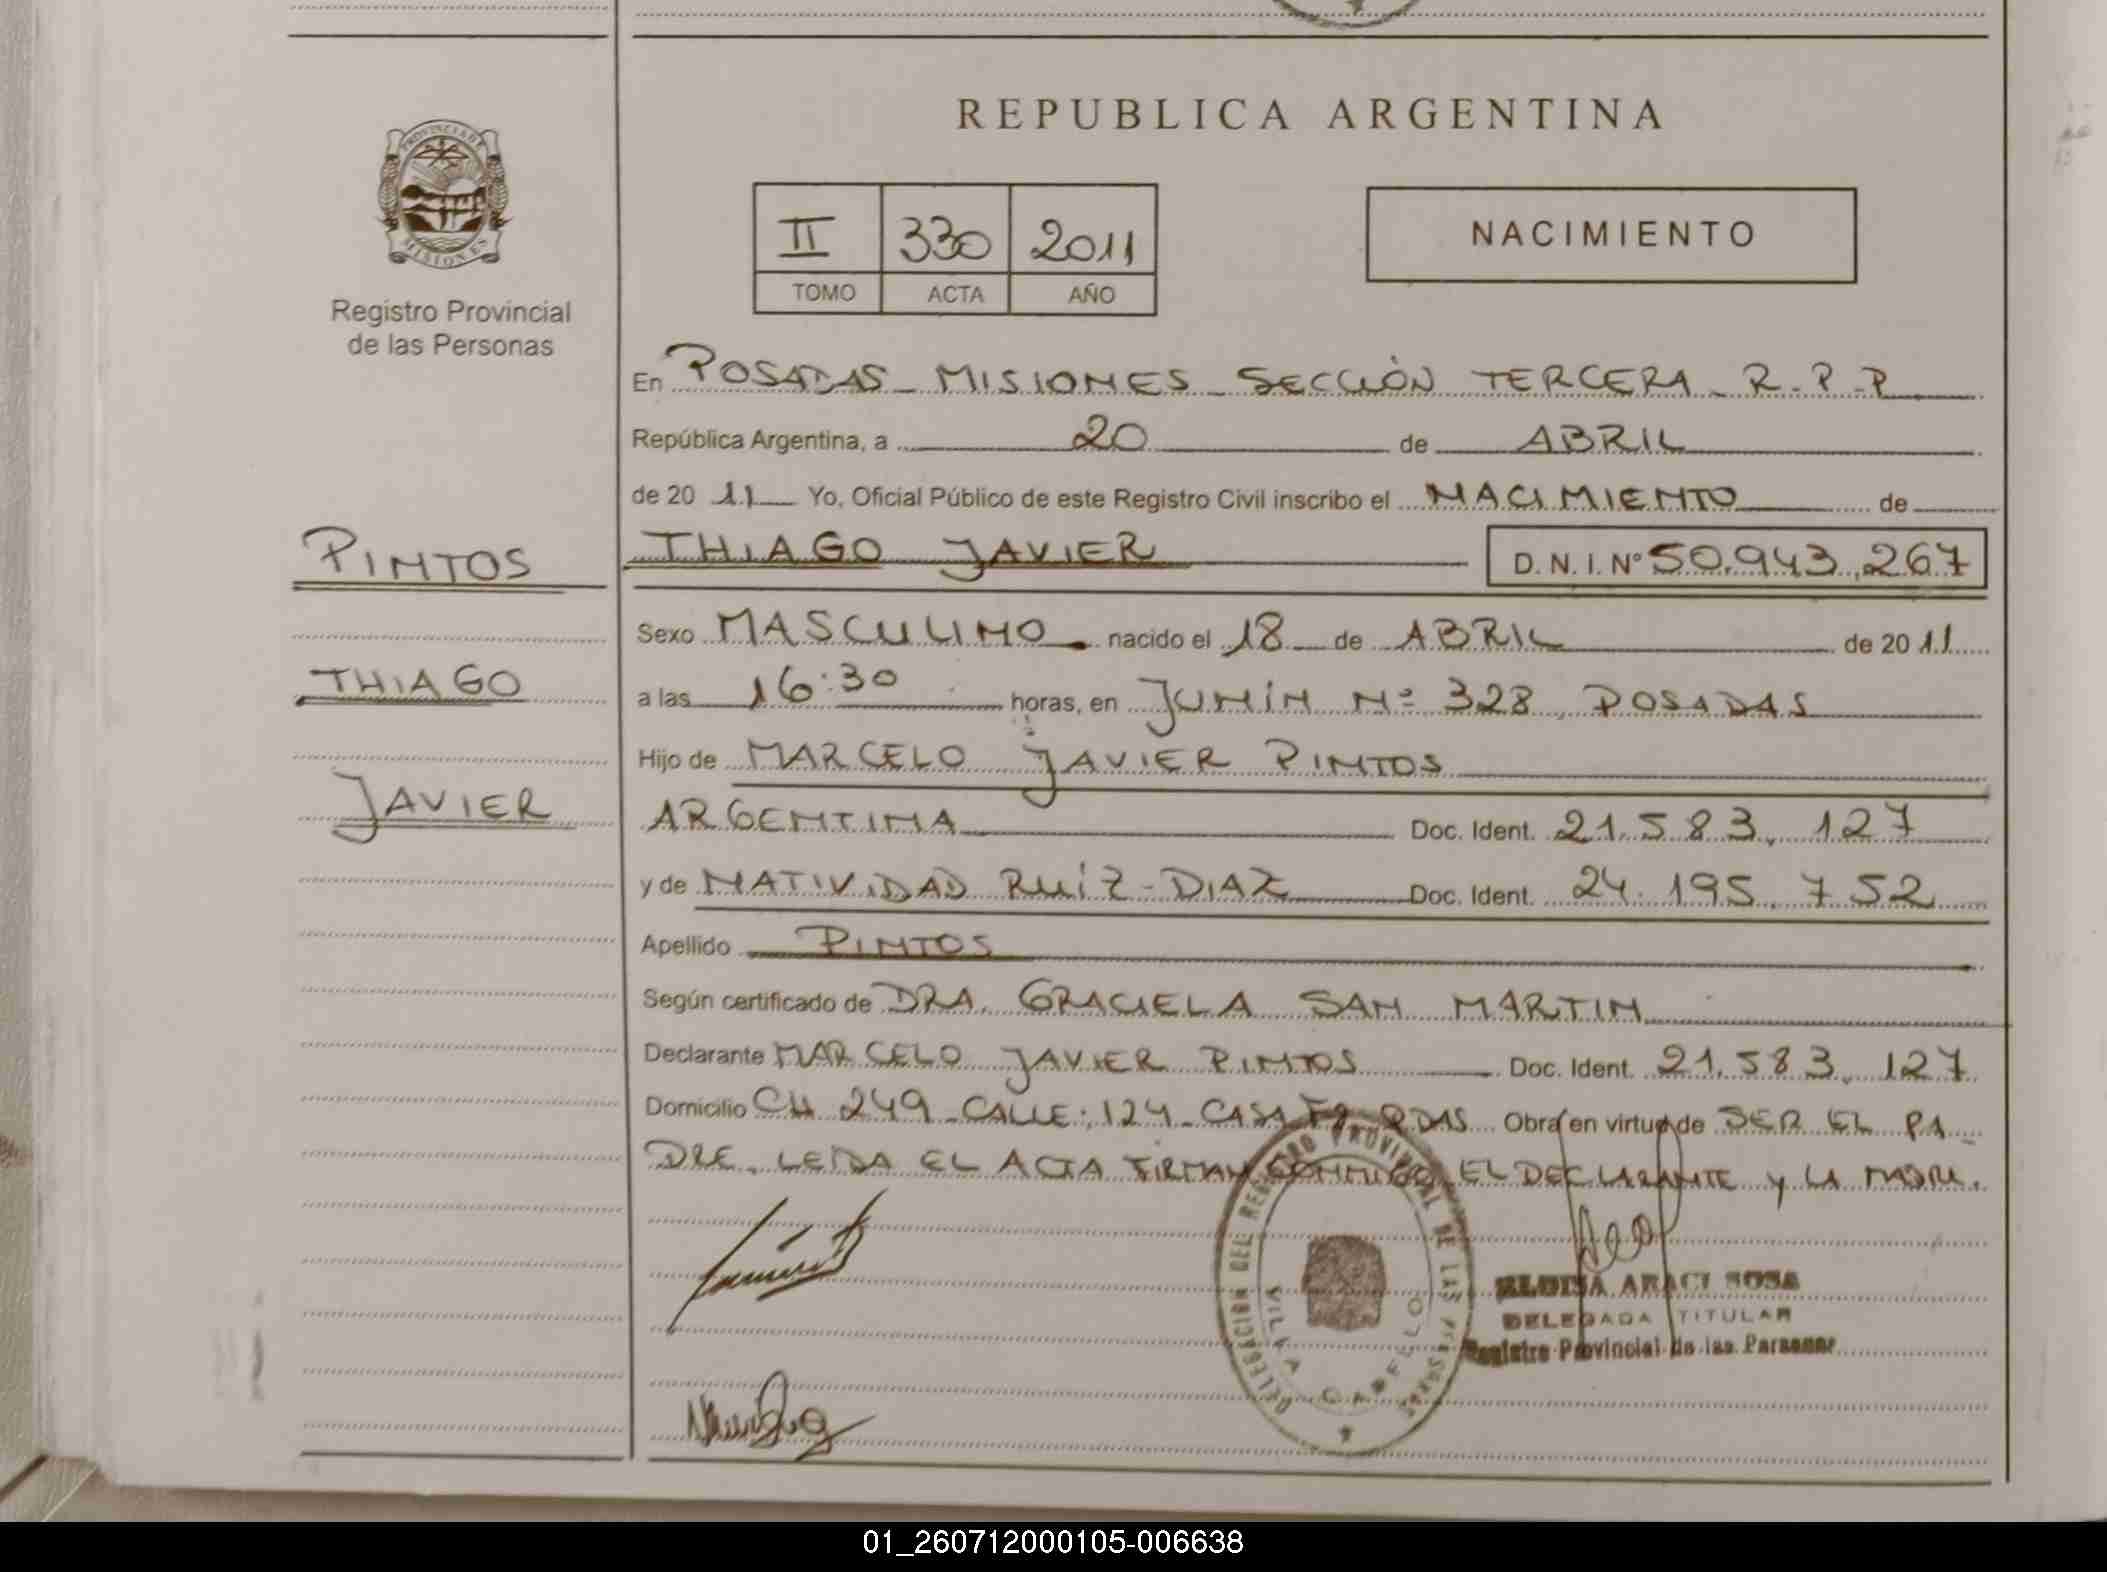 REPUBLICA ARGENTINA
PROVINCIA DE
MISIONES
Registro Provincial
de las Personas
II 330 2011
TOMO ACTA AÑO
NACIMIENTO
En POSADAS - MISIONES - SECCIÓN TERCERA - R.P.P
República Argentina, a 20 de ABRIL
de 20 11 Yo, Oficial Público de este Registro Civil inscribo el NACIMIENTO de
PINTOS
THIAGO JAVIER D.N.I. Nº 50.943.267
Sexo MASCULINO nacido el 18 de ABRIL de 20 11
THIAGO
a las 16:30 horas, en JUNÍN Nº 328, POSADAS
Hijo de MARCELO JAVIER PINTOS
JAVIER
ARGENTINA Doc. Ident. 21.583.127
y de NATIVIDAD RUÍZ-DIAZ Doc. Ident. 24.195.752
Apellido PINTOS
Según certificado de DRA. GRACIELA SAN MARTIN
Declarante MARCELO JAVIER PINTOS Doc. Ident. 21.583.127
Domicilio CH 249 - CALLE: 124 - CASA PDAS Obra en virtud de SER EL PA-
DRE. LEIDA EL ACTA FIRMAN CONMIGO EL DECLARANTE Y LA MADRE.
DELEGACION DEL REGISTRO PROVINCIAL DE LAS PERSONAS
VILLA CABELLO
ELOISA ARACI SOSA
DELEGADA TITULAR
Registro Provincial de las Personas
01_260712000105-006638